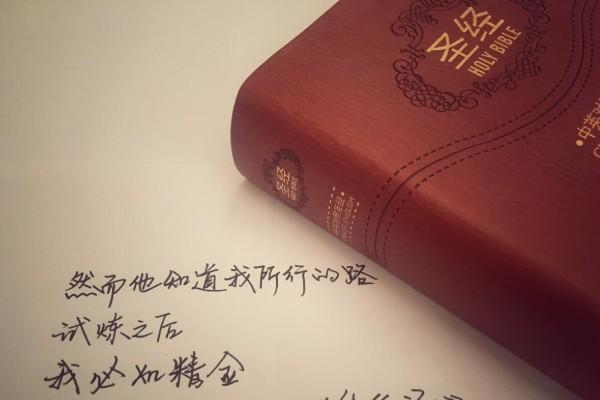 圣经
HOLY BIBLE
圣经
HOLY BIBLE
然而他知道我所行的路
试炼之后
我必如精金